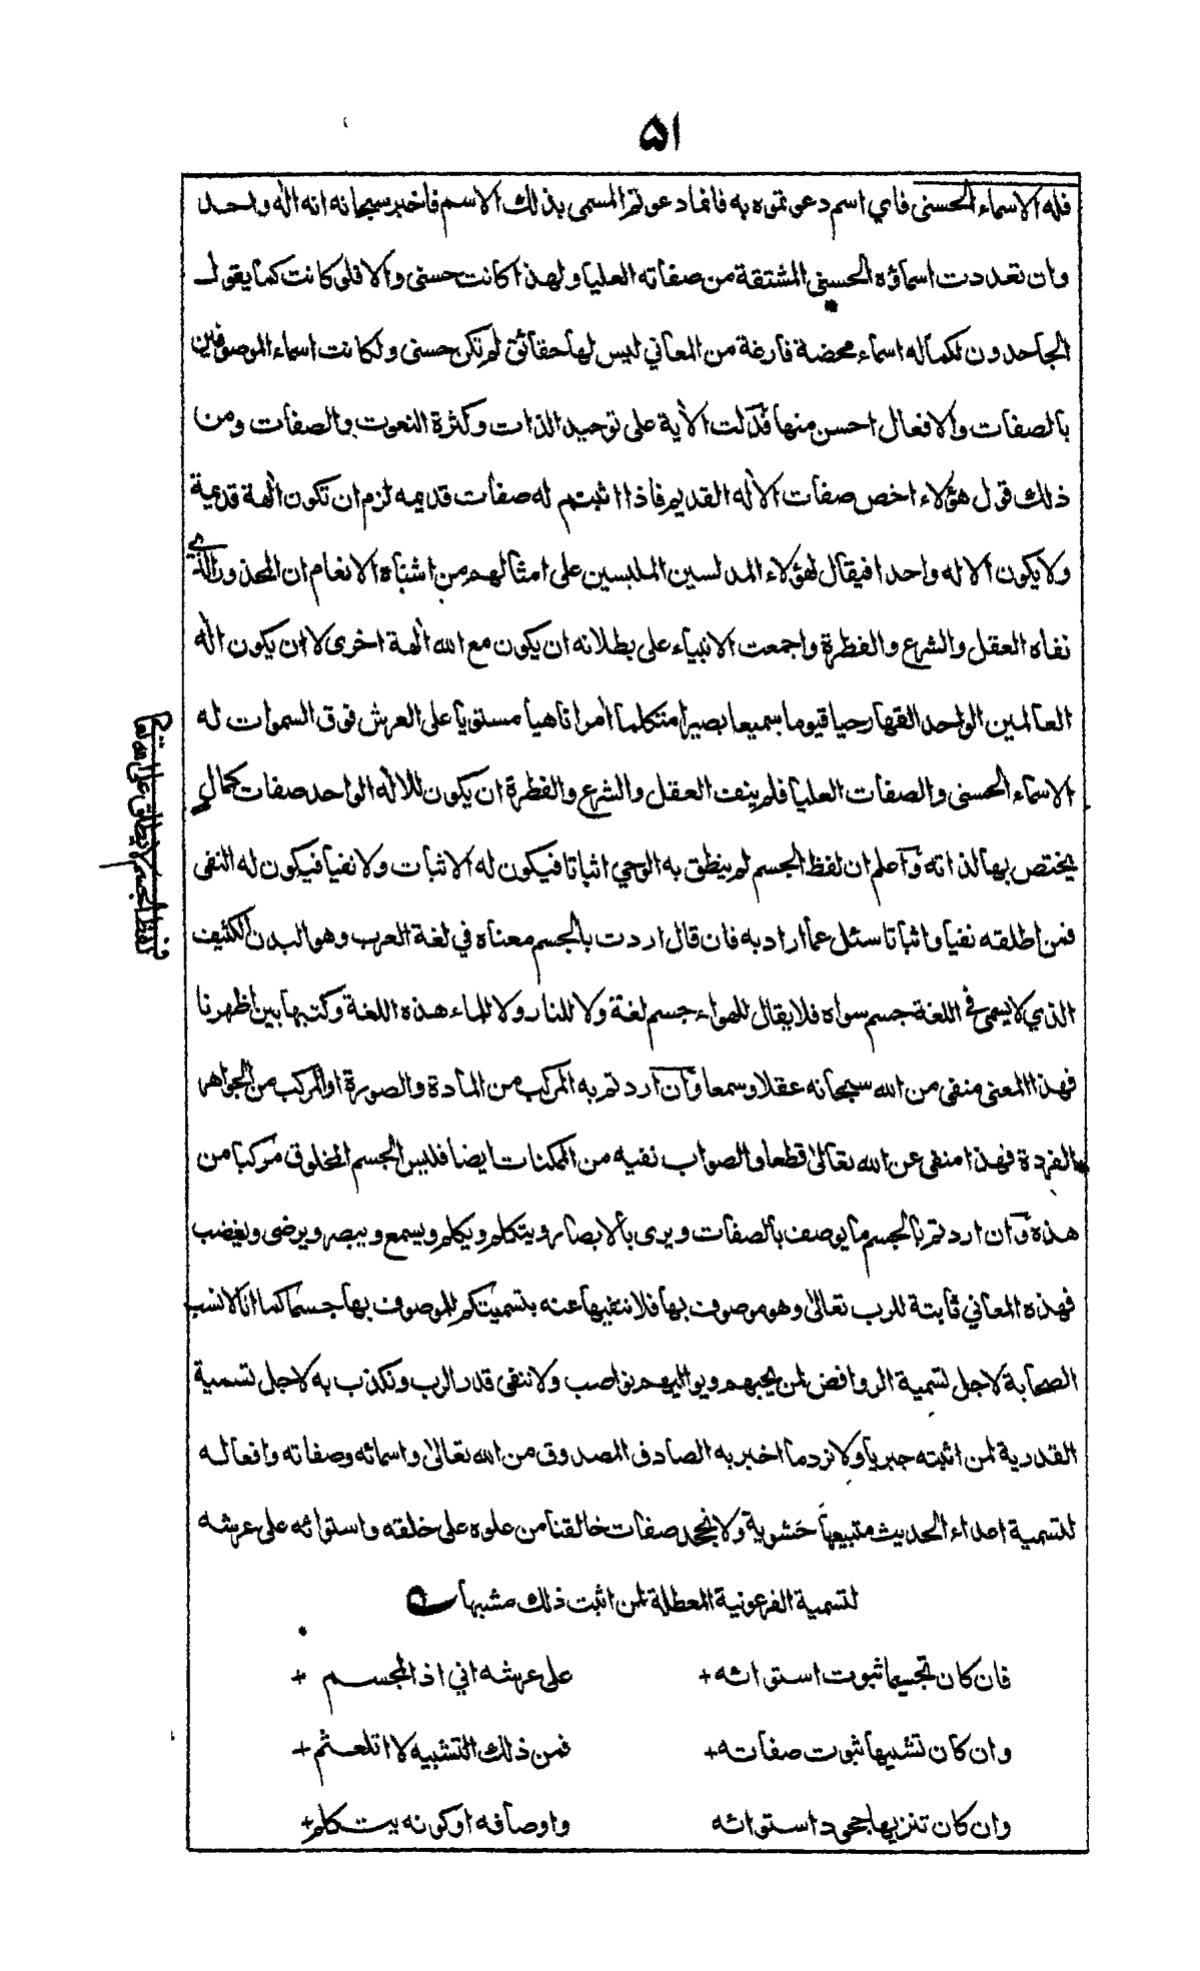 ۵۱
فله الاسماء الحسنى فاي اسم دعوتموه به فانما دعوتم المسمى بذلك الاسم فاخبر سبحانه انه اله واحد
وان تعددت اسماؤه الحسنى المشتقة من صفاته العليا ولهذا كانت حسنى والا فلو كانت كما يقول
الجاحدون لكماله اسماء محضة فارغة من المعاني ليس لها حقائق لم تكن حسنى ولكانت اسماء الموصوفين
بالصفات والافعال احسن منها فدلت الآية على توحيد الذات وكثرة النعوت والصفات ومن
ذلك قول هؤلاء اخص صفات الاله القديم فاذا اثبتم له صفات قديمه لزم ان تكون الهة قديمة
ولا يكون الا له واحدا فيقال لهؤلاء المدلسين الملبسين على امثالهم من اشباه الانعام ان المحذور الذي
نفاه العقل والشرع والفطرة واجمعت الانبياء على بطلانه ان يكون مع الله الهة اخرى لا ان يكون اله
العالمين الواحد القهار حيا قيوما سميعا بصيرا متكلما آمرا ناهيا مستويا على العرش فوق السموات له
الاسماء الحسنى والصفات العليا فلم ينف العقل والشرع والفطرة ان يكون للاله الواحد صفات كمال
يختص بها لذاته وآعلم ان لفظ الجسم لم ينطق به الوحي اثباتا فيكون له الاثبات ولا نفيا فيكون له النفى
فمن اطلقه نفيا واثباتا سئل عما اراد به فان قال اردت بالجسم معناه في لغة العرب وهو البدن الكثيف
الذي لا يسمى في اللغة جسم سواه فلا يقال للهواء جسم لغة ولا للنار ولا للماء هذه اللغة وكتبها بين اظهرنا
فهذا المعنى منفى من الله سبحانه عقلا وسمعا وآن اردتم به المركب من المادة والصورة او المركب من الجواهر
الفردة فهذا منفى عن الله تعالى قطعا والصواب نفيه من الممكنات ايضا فليس الجسم المخلوق مركبا من
هذه وآن اردتم بالجسم ما يوصف بالصفات ويرى بالابصار ويتكلم ويكلم ويسمع ويبصر ويرضى ويغضب
فهذه المعاني ثابتة للرب تعالى وهو موصوف بها فلا ننفيها عنه بتسميتكم للموصوف بها جسما كما انا لا نسب
الصحابة لاجل تسمية الروافض لمن يحبهم ويواليهم نواصب ولا ننفى قدر الرب ونكذب به لاجل تسمية
القدرية لمن اثبته جبريا ولا نرد ما اخبر به الصادق المصدوق من الله تعالى واسمائه وصفاته وافعاله
لتسمية اعداء الحديث متبعيها حَشوية ولا نجحد صفات خالقنا من علوه على خلقه واستوائه على عرشه
لتسمية الفرعونية المعطلة لمن اثبت ذلك مشبها
فان كان تجسيما ثبوت استوائه + على عرشه اني اذا لمجسم +
وان كان تشبيها ثبوت صفاته + فمن ذلك التشبيه لا اتلعثم +
وان كان تنزيها جحود استوائه واوصافه او كونه يتكلم +